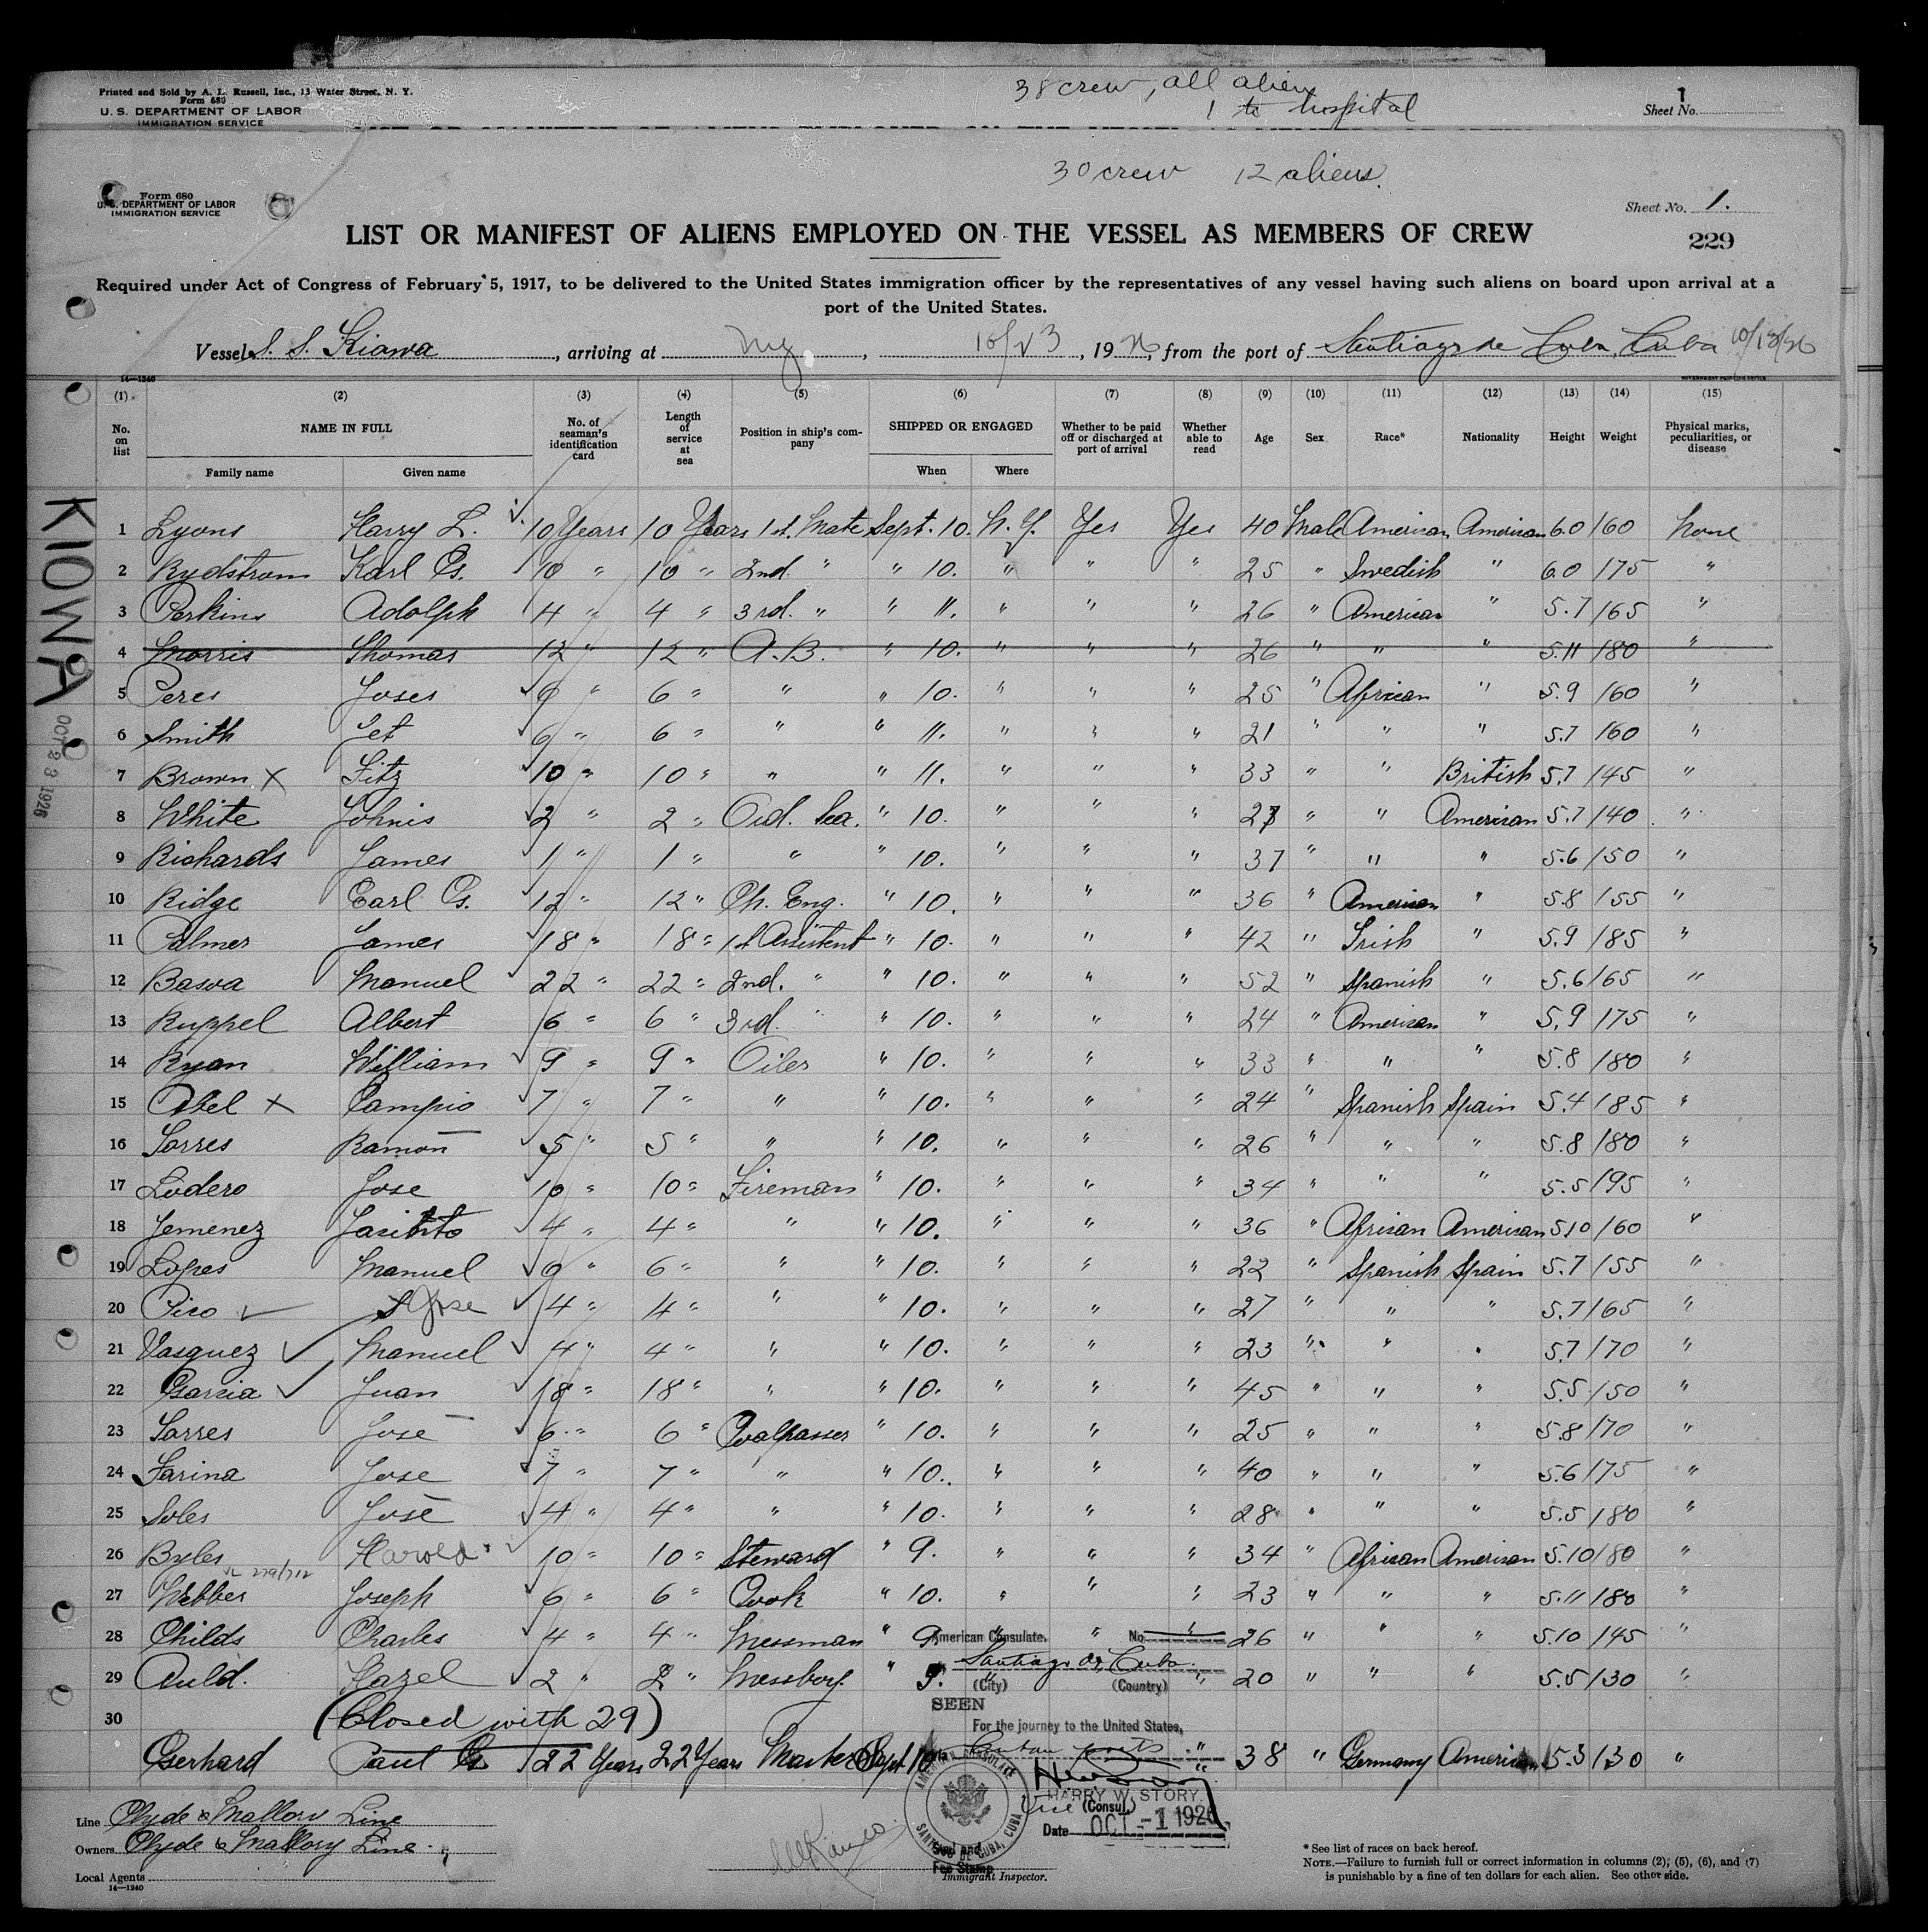 Printed and Sold by A. L. Russell, Inc., 13 Water Street, N. Y.
Form 680
U. S. DEPARTMENT OF LABOR
IMMIGRATION SERVICE
38 crew, all alien
1 to hospital
Sheet No. 1
30 crew 12 aliens.
Form 680
U. S. DEPARTMENT OF LABOR
IMMIGRATION SERVICE
Sheet No. 1.
229
LIST OR MANIFEST OF ALIENS EMPLOYED ON THE VESSEL AS MEMBERS OF CREW
Required under Act of Congress of February 5, 1917, to be delivered to the United States immigration officer by the representatives of any vessel having such aliens on board upon arrival at a
port of the United States.
Vessel S. S. Kiowa, arriving at NY, 10/23, 1926, from the port of Santiago de Cuba, Cuba 10/18/26
14—1240
(1) (2) (3) (4) (5) (6) (7) (8) (9) (10) (11) (12) (13) (14) (15)
No. on list
NAME IN FULL
Family name Given name
No. of seaman's identification card
Length of service at sea
Position in ship's company
SHIPPED OR ENGAGED
When Where
Whether to be paid off or discharged at port of arrival
Whether able to read
Age
Sex
Race*
Nationality
Height
Weight
Physical marks, peculiarities, or disease
KIOWA
OCT 23 1926
1 Lyons Harry L. 10 Years 10 Years 1st. Mate Sept. 10. N. Y. Yes Yes 40 Male American American 6.0 160 None
2 Rydstrom Karl G. 10 " 10 " 2nd. " " 10. " " " 25 " Swedish " 6.0 175 "
3 Perkins Adolph 4 " 4 " 3rd. " " 11. " " " 26 " American " 5.7 165 "
4 Morris Thomas 12 " 12 " A.B. " 10. " " " 26 " " " 5.11 180 "
5 Peres Joses 6 " 6 " " " 10. " " " 25 " African " 5.9 160 "
6 Smith Jet 6 " 6 " " " 11. " " " 21 " " " 5.7 160 "
7 Brown X Fitz 10 " 10 " " " 11. " " " 33 " " British 5.7 145 "
8 White Johnis 2 " 2 " Ord. Sea. " 10. " " " 27 " " American 5.7 140 "
9 Richards James 1 " 1 " " " 10. " " " 37 " " " 5.6 150 "
10 Ridge Earl G. 12 " 12 " Ch. Eng. " 10. " " " 36 " American " 5.8 155 "
11 Palmer James 18 " 18 " 1st Assistent " 10. " " " 42 " Irish " 5.9 185 "
12 Basoa Manuel 22 " 22 " 2nd. " " 10. " " " 52 " Spanish " 5.6 165 "
13 Ruppel Albert 6 " 6 " 3rd. " " 10. " " " 24 " American " 5.9 175 "
14 Ryan William 9 " 9 " Oiler " 10. " " " 33 " " " 5.8 180 "
15 Abel X Campio 7 " 7 " " " 10. " " " 24 " Spanish Spain 5.4 185 "
16 Torres Ramon 5 " 5 " " " 10. " " " 26 " " " 5.8 180 "
17 Lodero Jose 10 " 10 " Fireman " 10. " " " 34 " " " 5.5 195 "
18 Jemenez Jacinto 4 " 4 " " " 10. " " " 36 " African American 5.10 160 "
19 Lopes Manuel 6 " 6 " " " 10. " " " 22 " Spanish Spain 5.7 155 "
20 Pico Jose 4 " 4 " " " 10. " " " 27 " " " 5.7 165 "
21 Vasquez Manuel 4 " 4 " " " 10. " " " 23 " " " 5.7 170 "
22 Garcia Juan 18 " 18 " " " 10. " " " 45 " " " 5.5 150 "
23 Torres Jose 6 " 6 " Coalpasser " 10. " " " 25 " " " 5.8 170 "
24 Farina Jose 7 " 7 " " " 10. " " " 40 " " " 5.6 175 "
25 Soles Jose 4 " 4 " " " 10. " " " 28 " " " 5.5 180 "
26 Byles Harold 10 " 10 " Steward " 9. " " " 34 " African American 5.10 180 "
279/712
27 Webber Joseph 6 " 6 " Cook " 10. " " " 23 " " " 5.11 180 "
28 Childs Charles 4 " 4 " Messman " 9. " " " 26 " " " 5.10 145 "
29 Auld. Hazel 2 " 2 " Messboy. " 9. " " " 20 " " " 5.5 130 "
30 (Closed with 29)
Gerhard Paul G. 22 Years 22 Years Master Sept 10 " " 38 " Germany American 5.3 130 "
American Consulate. No.
Santiago de Cuba.
(City) (Country)
SEEN
For the journey to the United States,
HARRY W. STORY.
Vice (Consul.)
Date OCT -1 1926
AMERICAN CONSULATE
SANTIAGO DE CUBA, CUBA
Seal and
Fee Stamp
Line Clyde & Mallory Line
Owners Clyde & Mallory Line.
Local Agents
14—1240
Immigrant Inspector.
* See list of races on back hereof.
NOTE.—Failure to furnish full or correct information in columns (2), (5), (6), and (7)
is punishable by a fine of ten dollars for each alien. See other side.